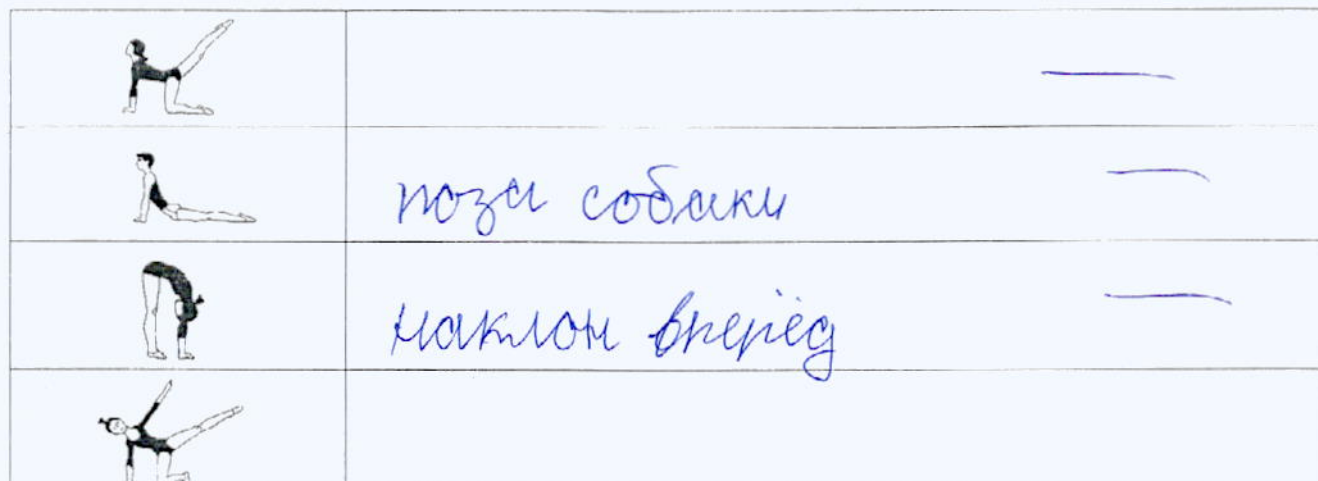 поза собаки
наклон вперёд